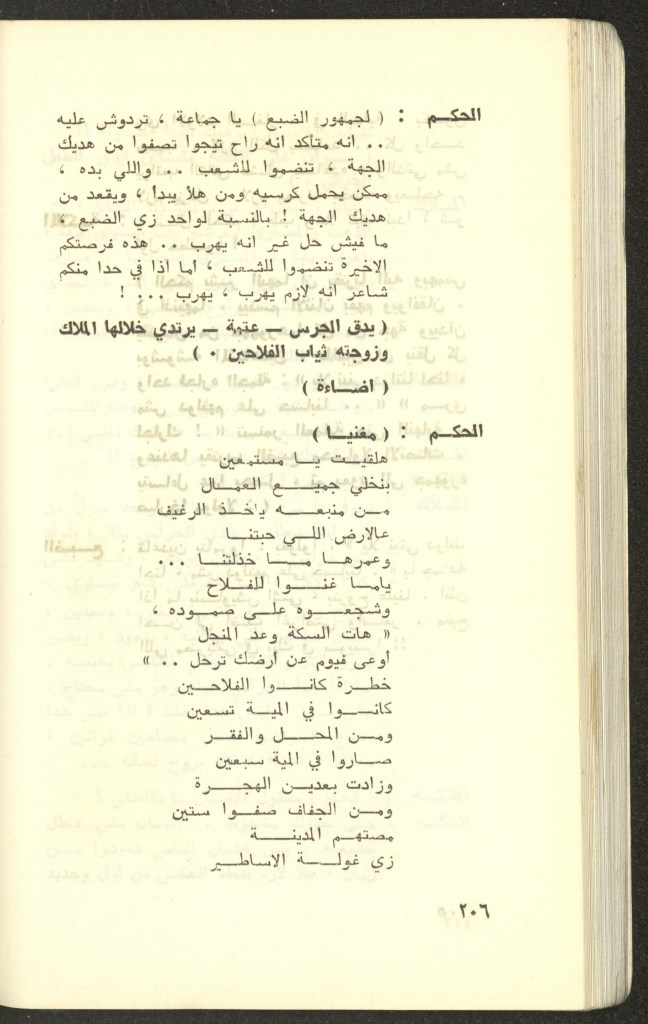 الحكم : ( لجمهور الضبع ) يا جماعة ، تردوش عليه
.. انه متأكد انه راح تيجوا تصفوا من هديك
الجهة ، تنضموا للشعب .. واللي بده ،
ممكن يحمل كرسيه ومن هلأ يبدا ، ويقعد من
هديك الجهة ! بالنسبة لواحد زي الضبع ،
ما فيش حل غير انه يهرب .. هذه فرصتكم
الاخيرة تنضموا للشعب ، أما اذا في حدا منكم
شاعر انه لازم يهرب ، يهرب ... !
( يدق الجرس ــ عتمة ــ يرتدي خلالها الملاك
وزوجته ثياب الفلاحين . )
( اضاءة )
الحكم : ( مغنيا )
هلقيت يا مستمعين
بنخلي جميع العمال
من منبعه ياخذ الرغيف
عالارض اللي حبتنا
وعمرها ما خذلتنا ...
ياما غنوا للفلاح
وشجعوه على صموده ،
« هات السكة وعد المنجل
اوعى فيوم عن أرضك ترحل .. »
خطرة كانوا الفلاحين
كانوا في المية تسعين
ومن المحل والفقر
صاروا في المية سبعين
وزادت بعدين الهجرة
ومن الجفاف صفوا ستين
مصتهم المدينة
زي غولة الاساطير
٢٠٦